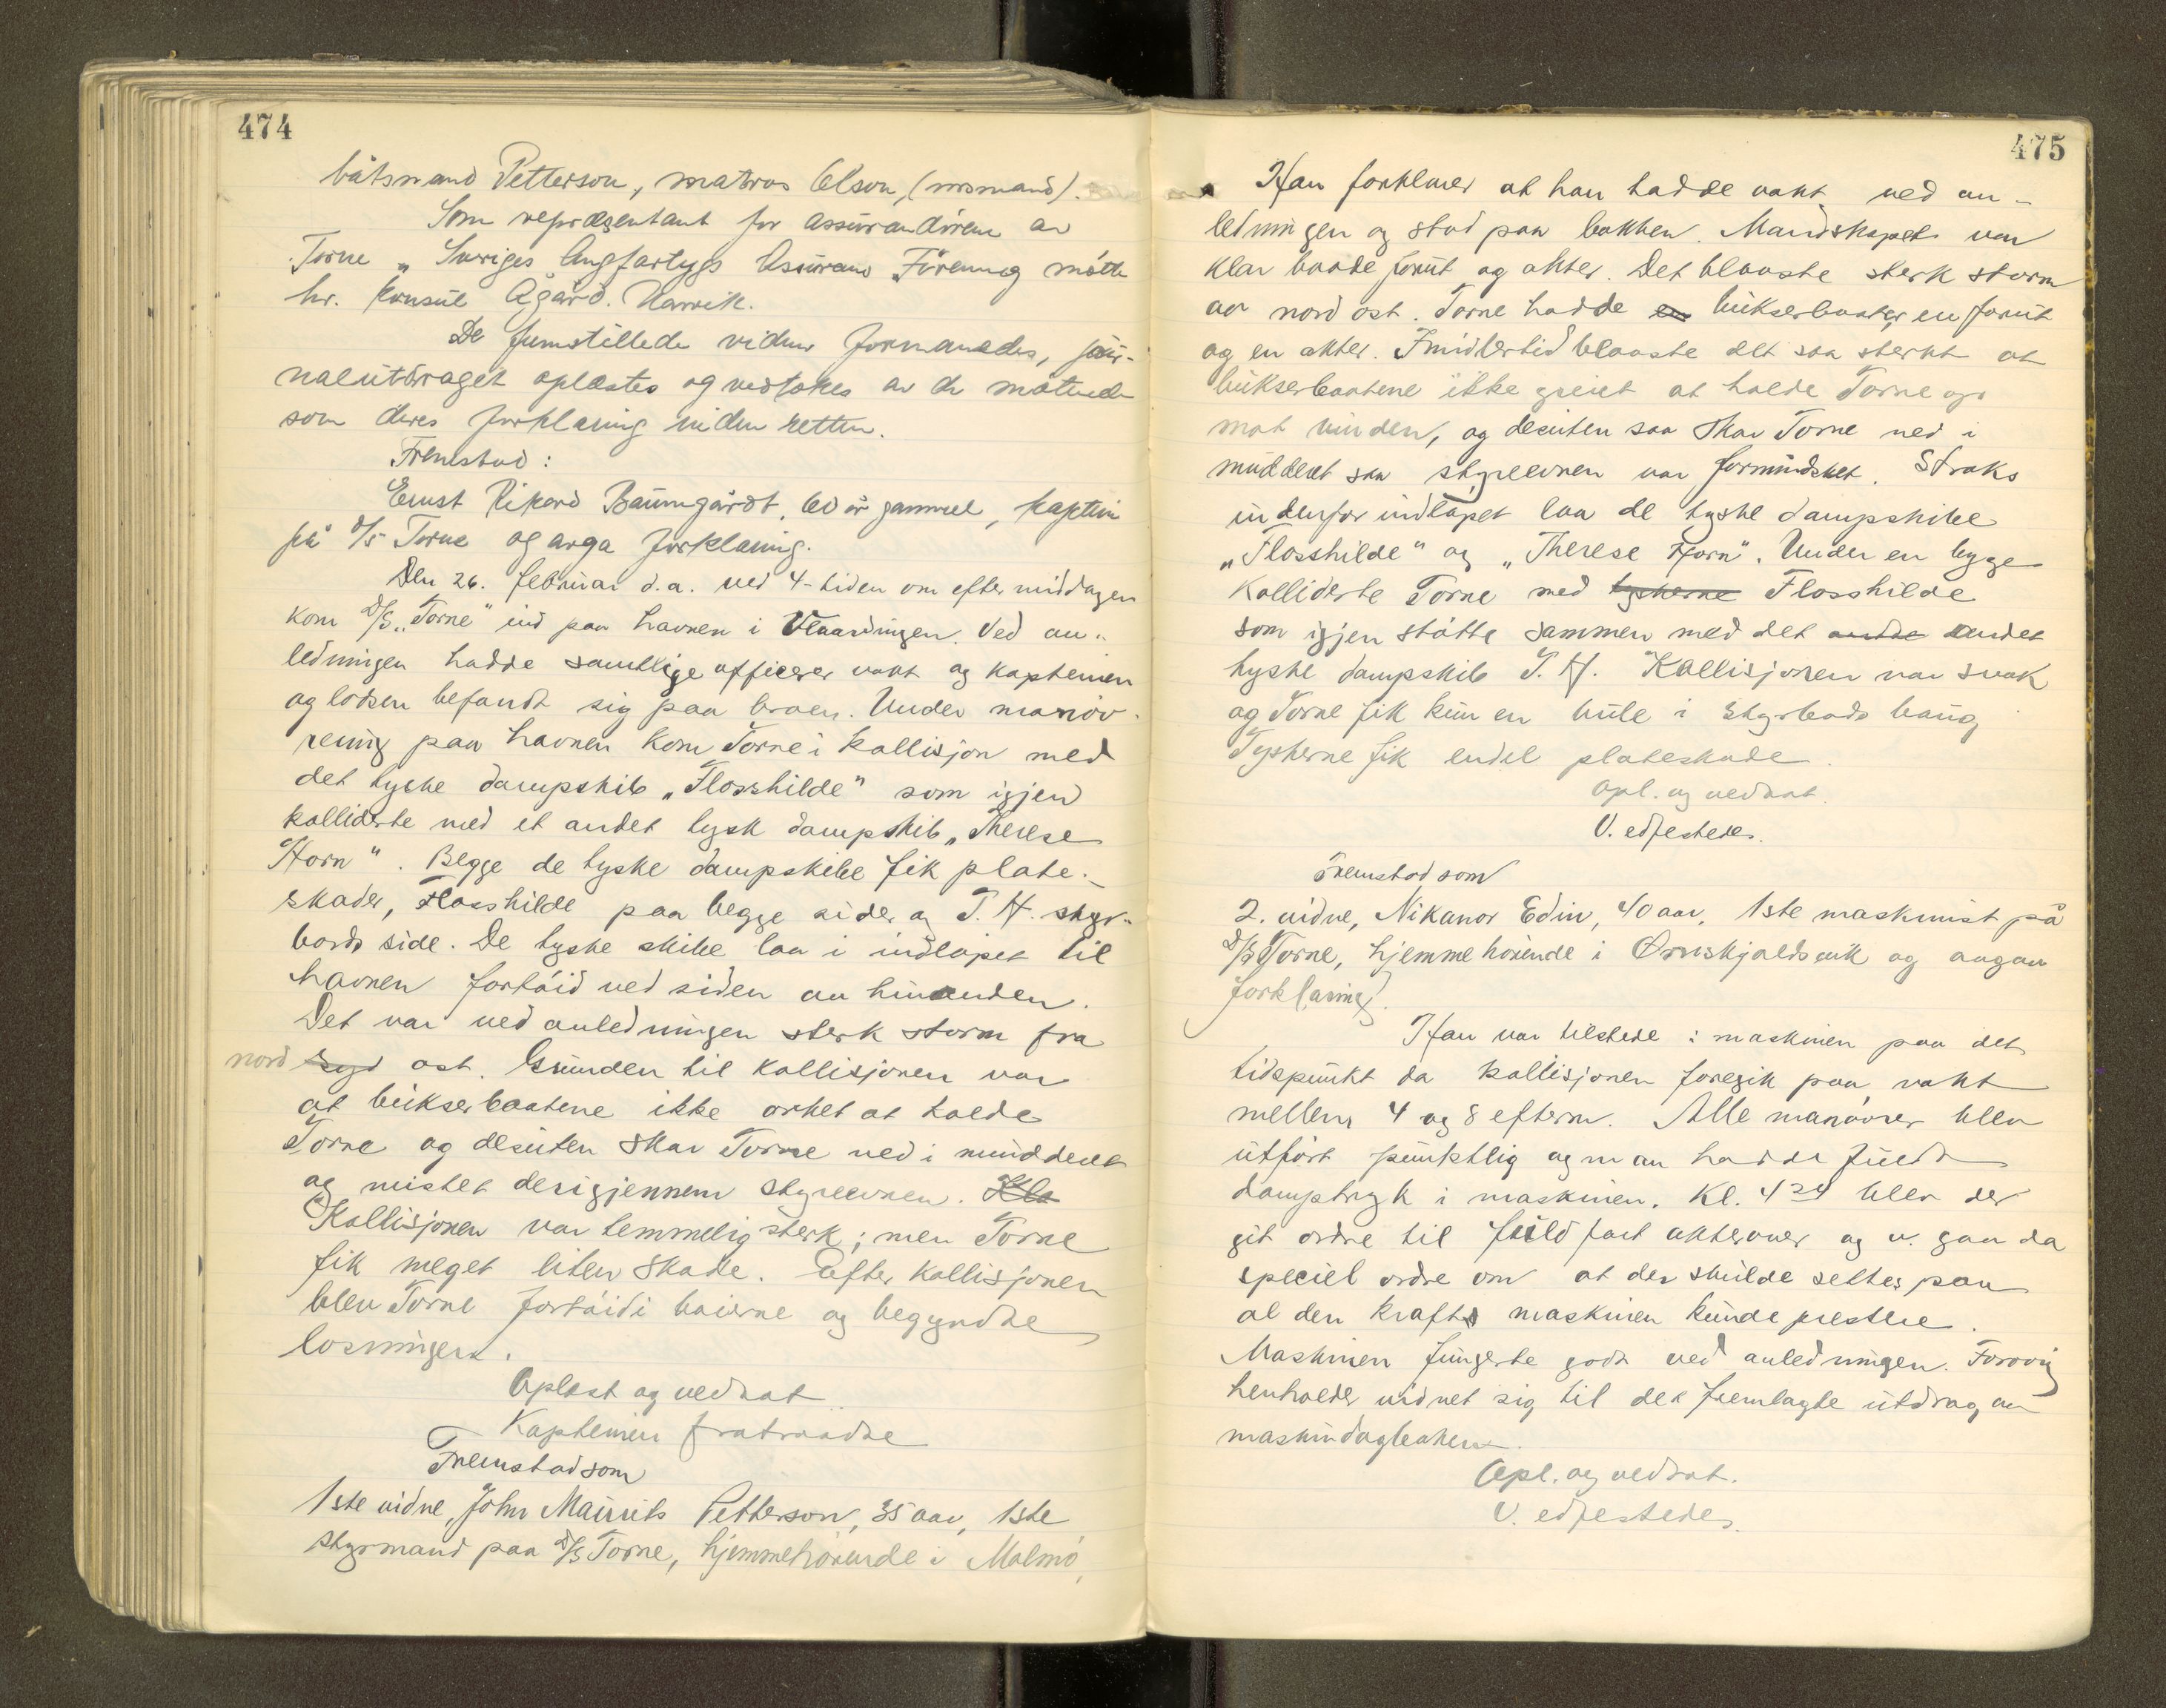 474
båtsmand Petterson, matros Olson, (rorsmand).
Som repræsentant for assurandören av
Torne „Sveriges Ångfartygs Assurans Förening mötte
hr. konsul Ågård. Narvik.
De fremstillede vidner formanedes, jour-
nalutdraget oplæstes og vedtokes av de møtende
som deres forklaring inden retten.
Fremstod:
Ernst Rikard Baumgårdt, 60 år gammel, kaptein
på D/S Torne og avga forklaring.
Den 26. februar d.a. ved 4-tiden om eftermiddagen
kom D/S „Torne" ind paa havnen i Vlaardingen. Ved an-
ledningen hadde samtlige officerer vakt og kapteinen
og lodsen befandt sig paa broen. Under manöv-
rering paa havnen kom Torne i kollisjon med
det tyske dampskib „Flosshilde" som igjen
kolliderte med et andet tysk dampskib „Therese
Horn". Begge de tyske dampskibe fik plate-
skader, Flosshilde paa begge sider og T. H. styr-
bords side. De tyske skibe laa i indløpet til
havnen fortöid ved siden av hinanden.
Det var ved anledningen sterk storm fra
nord syd ost. Grunden til kollisjonen var
at bukserbaatene ikke orket at holde
Torne og desuten skar Torne ned i mudderet
og mistet derigjennem styreevnen. Klo
Kollisjonen var temmelig sterk; men Torne
fik meget liten skade. Efter kollisjonen
blev Torne fortöid i böierne og begyndte
losningen.
Oplæst og vedtat
Kapteinen fratraadte
Fremstod som
1ste vidne, John Maurits Petterson, 35 aar, 1ste
styrmand paa D/S Torne, hjemmehörende i Malmö,
475
Han forklarer at han hadde vakt ved an-
ledningen og stod paa bakken. Mandskapet var
klar baade forut og akter. Det blaaste sterk storm
av nord ost. Torne hadde en bukserbaater, en forut
og en akter. Imidlertid blaaste det saa sterkt at
bukserbaatene ikke greiet at holde Torne op
mot vinden, og desuten saa skar Torne ned i
mudderet saa styreevnen var formindsket. Straks
indenfor indløpet laa de tyske dampskibe
„Flosshilde" og „Therese Horn". Under en bygge
kolliderte Torne med tyskerne Flosshilde
som igjen stötte sammen med det andre andet
tyske dampskib T. H. Kollisjonen var svak
og Torne fik kun en bule i styrbords baug
Tyskerne fik endel plateskade.
Opl. og vedtat.
V. edfestedes.
Fremstod som
2. vidne, Nikanor Edin, 40 aar, 1ste maskinist på
D/S Torne, hjemmehörende i Ørnskjoldsvik og avgav
forklaring.
Han var tilstede i maskinen paa det
tidspunkt da kollisjonen foregik paa vakt
mellem 4 og 8 efterm. Alle manövrer blev
utfört punktlig og man hadde fuldt
damptryk i maskinen. Kl. 4 24 blev der
git ordre til fuld fart akterover og v. gav da
speciel ordre om at der skulde settes paa
al den kraft maskinen kunde prestere.
Maskinen fungerte godt ved anledningen. Forövrig
henholder vidnet sig til det fremlagte utdrag av
maskindagboken.
Opl. og vedtat.
V. edfestedes.